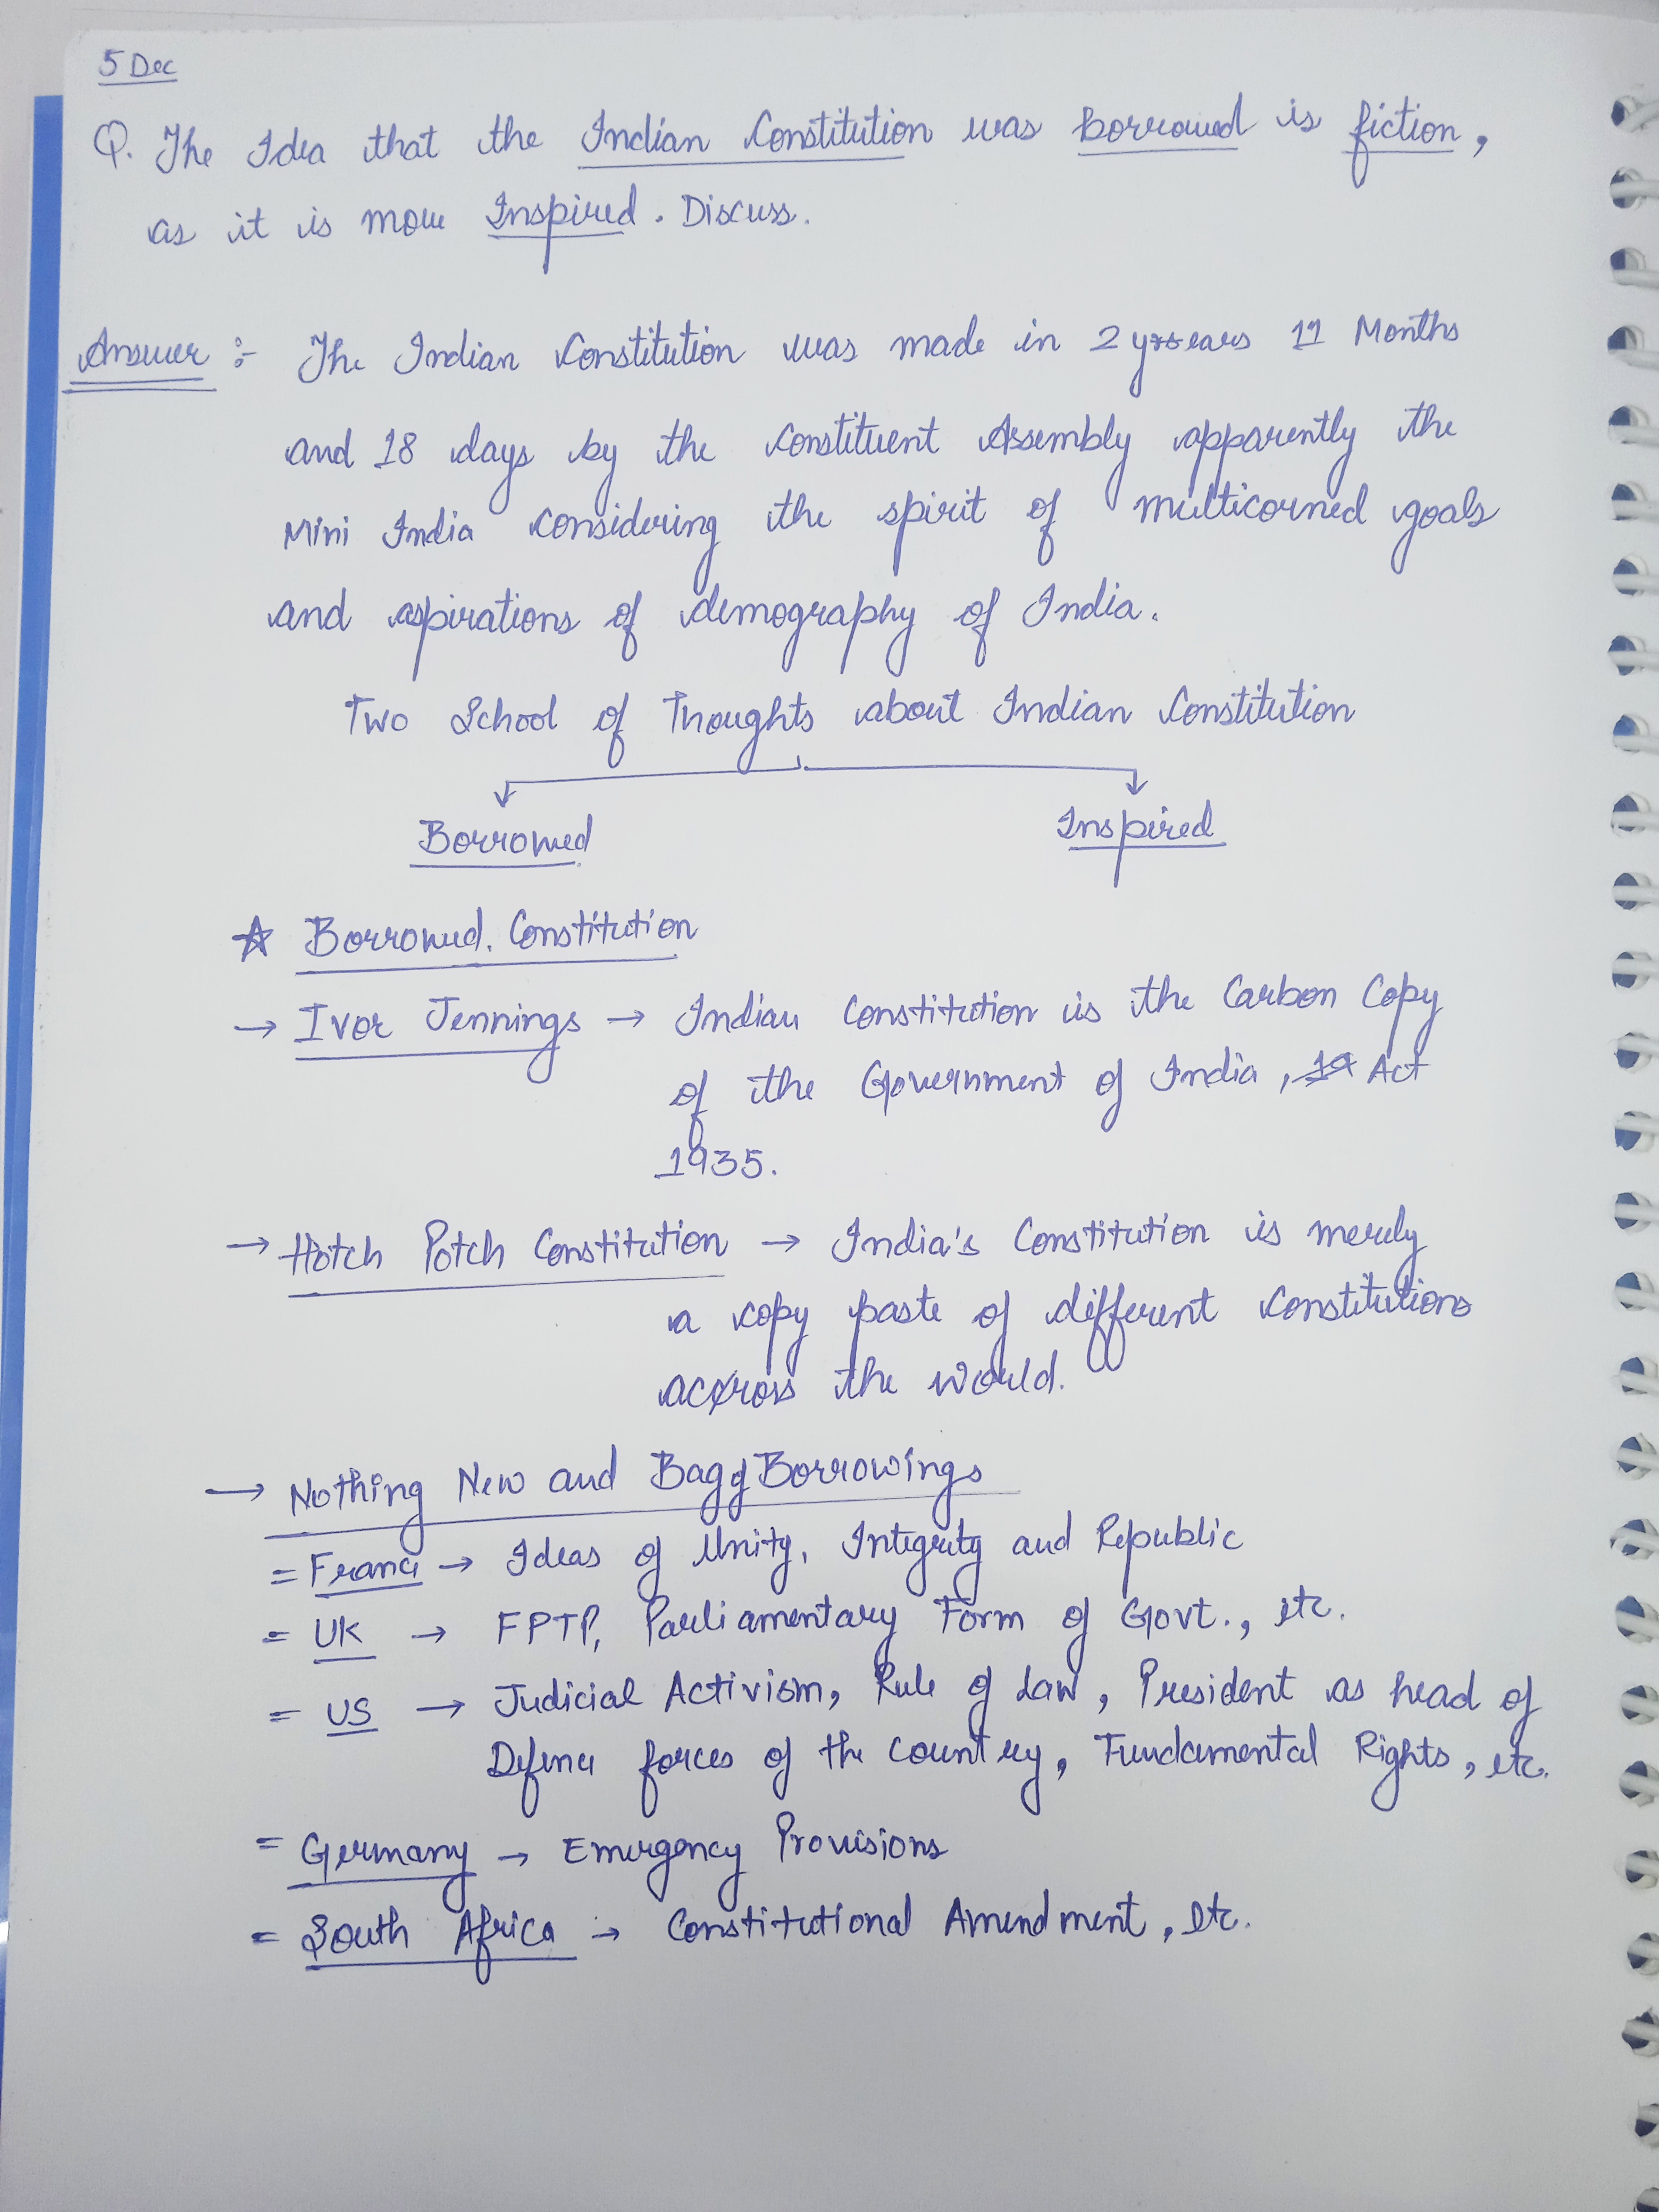 5 Dec
Q. The Idea that the Indian Constitution was borrowed is fiction,
as it is more Inspired. Discuss.
Answer :- The Indian Constitution was made in 2 years 11 Months
and 18 days by the Constituent Assembly apparently the
Mini India considering the spirit of multicorned goals
and aspirations of demography of India.
Two School of Thoughts about Indian Constitution
Borrowed Inspired
☆ Borrowed. Constitution
→ Ivor Jennings → Indian Constitution is the Carbon Copy
of the Government of India, Act
1935.
→ Hotch Potch Constitution → India's Constitution is merely
a copy paste of different constitutions
across the world.
→ Nothing New and Bag of Borrowings
= France → Ideas of Unity, Integrity and Republic
= UK → FPTP, Parliamentary Form of Govt., etc.
= US → Judicial Activism, Rule of Law, President as head of
Defence forces of the country, Fundamental Rights, etc.
= Germany → Emergency Provisions
= South Africa → Constitutional Amendment, etc.